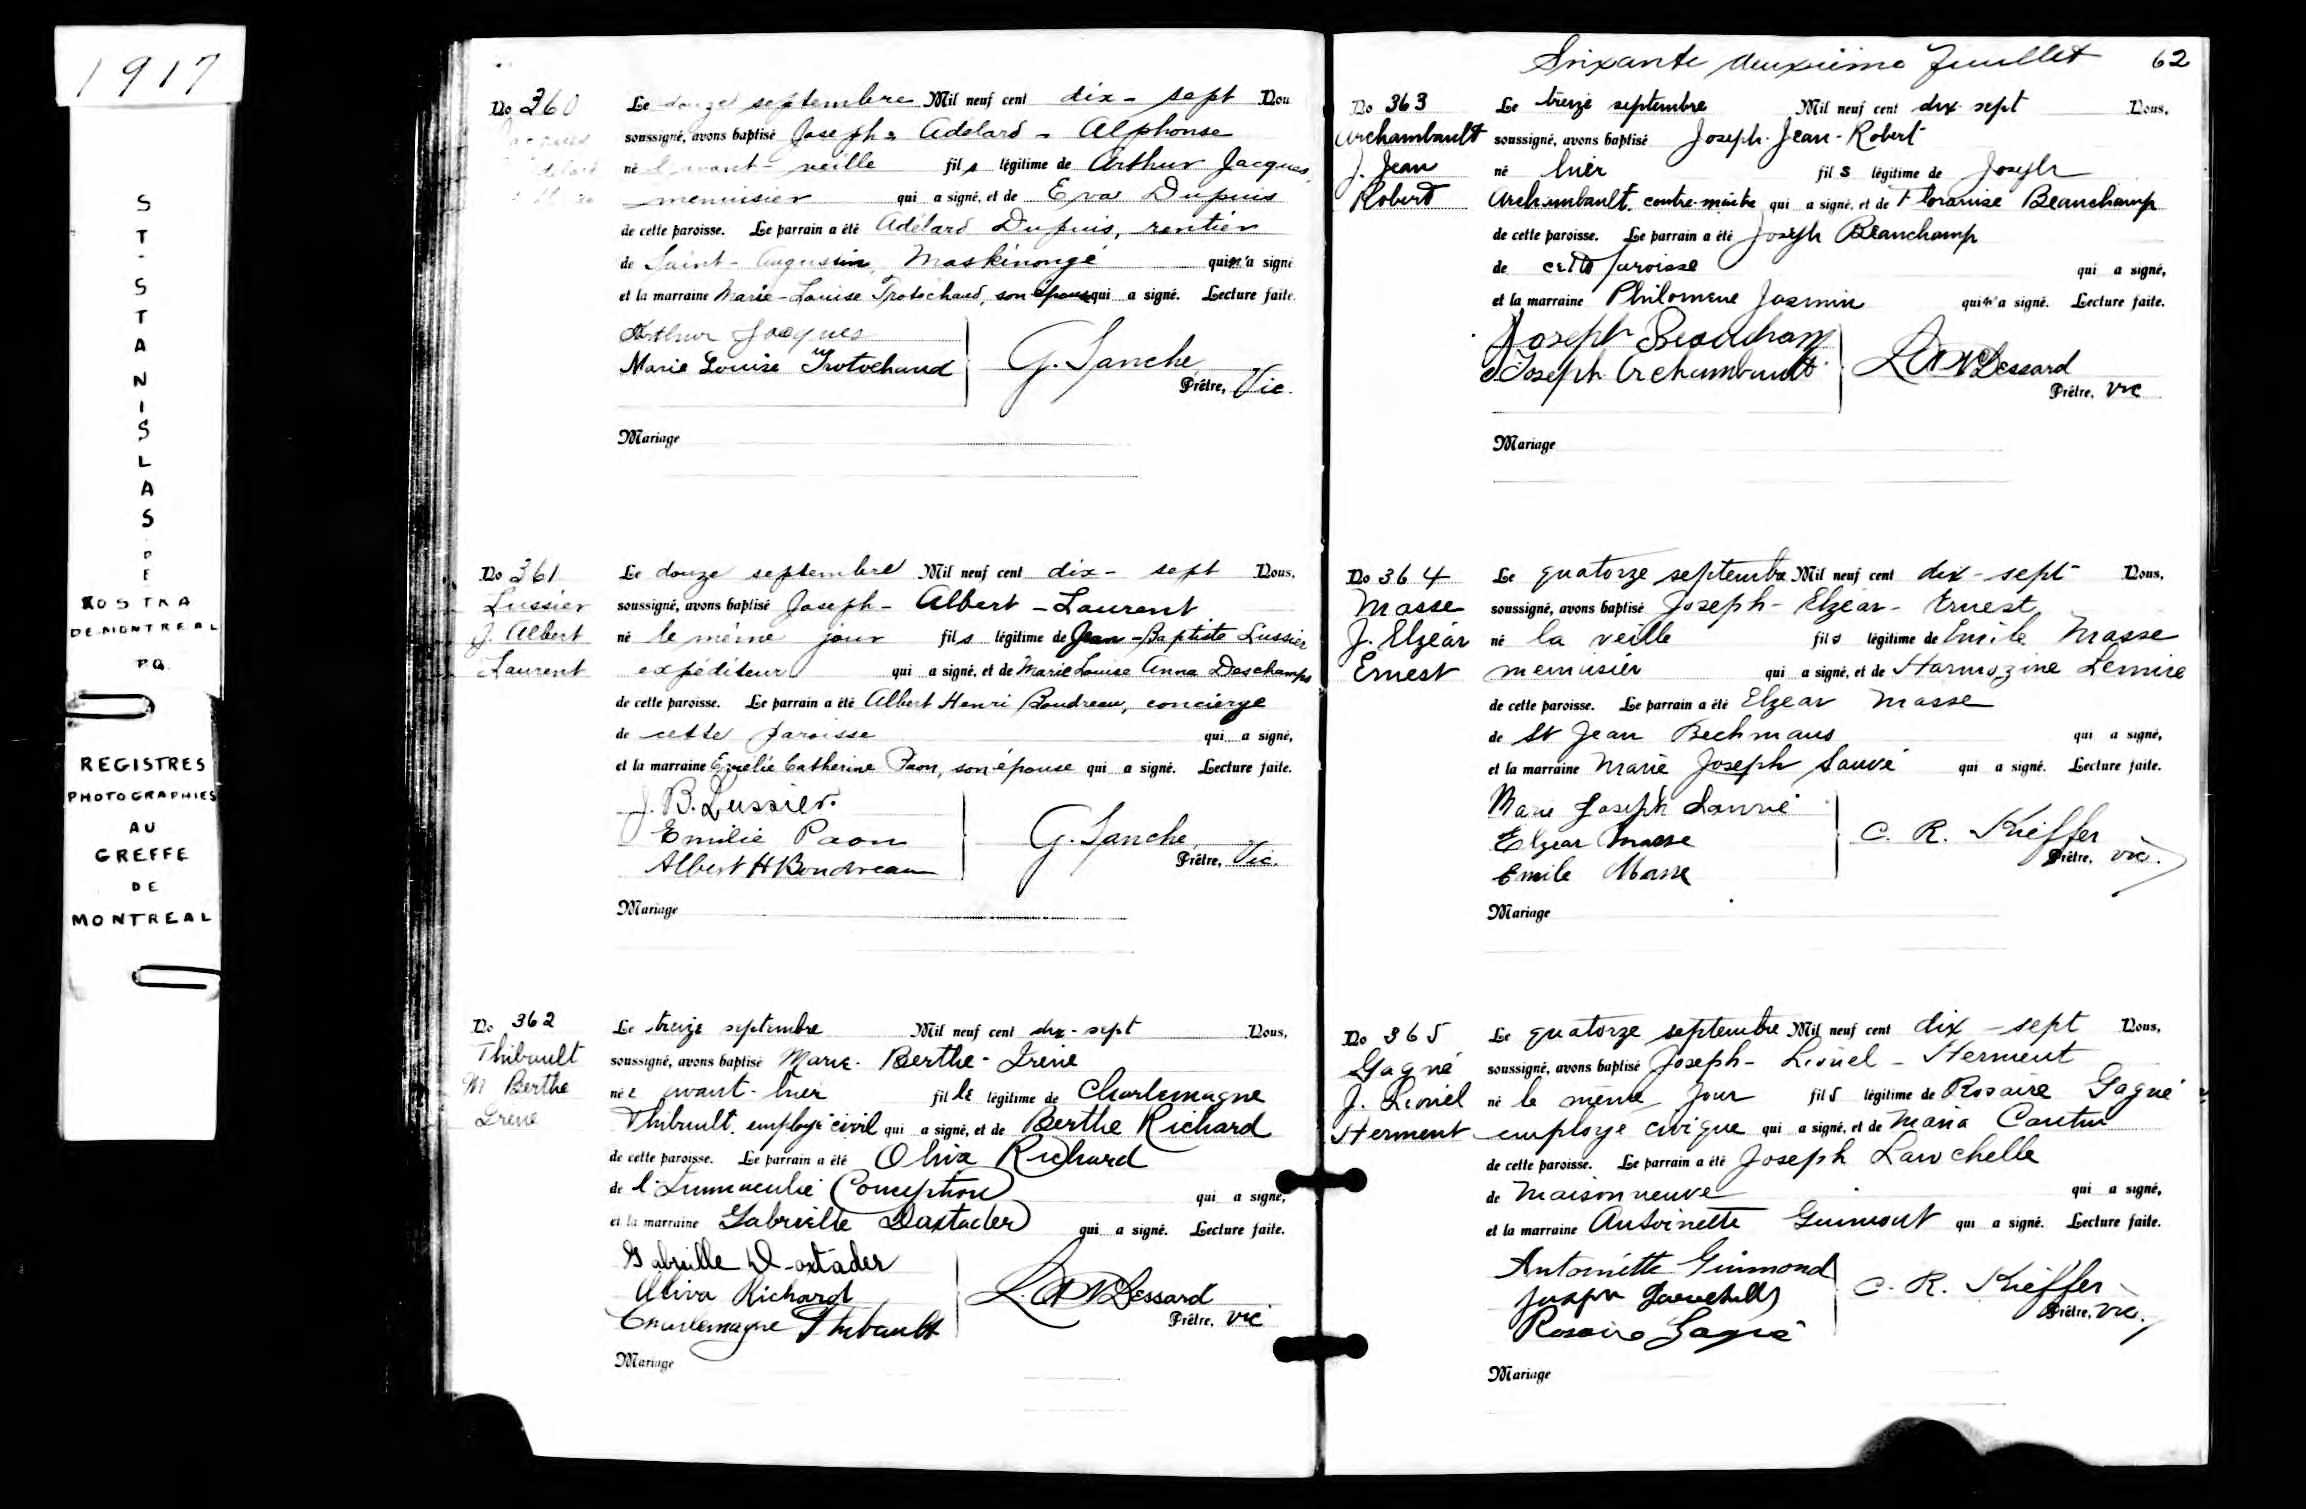 1917
ST-STANISLAS
DE
KOSTKA
DE MONTREAL
P.Q.
REGISTRES
PHOTOGRAPHIES
AU
GREFFE
DE
MONTREAL
No 360
Le douze septembre Mil neuf cent dix-sept Nou
soussigné, avons baptisé Joseph-Adelard-Alphonse
né l'avant-veille fils légitime de Arthur Jacques,
menuisier qui a signé, et de Eva Dupuis
de cette paroisse. Le parrain a été Adélard Dupuis, rentier
de Saint-Augustin, Maskinongé qui n'a signé
et la marraine Marie-Louise Trotochaud, son épouse qui a signé. Lecture faite.
Arthur Jacques
Marie Louise Trotochaud
G. Sanche,
Prêtre, Vic.
Mariage
No 361
Lussier
J. Albert
Laurent
Le douze septembre Mil neuf cent dix-sept Nous,
soussigné, avons baptisé Joseph-Albert-Laurent
né le même jour fils légitime de Jean-Baptiste Lussier
expéditeur qui a signé, et de Marie Louise Anna Deschamps
de cette paroisse. Le parrain a été Albert Henri Boudreau, concierge
de cette paroisse qui a signé,
et la marraine Emélie Catherine Paon, son épouse qui a signé. Lecture faite.
J. B. Lussier.
Emilie Paon
Albert H Boudreau
G. Sanche,
Prêtre, Vic.
Mariage
No 362
Thibault
M Berthe
Irene
Le treize septembre Mil neuf cent dix-sept Nous,
soussigné, avons baptisé Marie-Berthe-Irene
née avant-hier fille légitime de Charlemagne
Thibault, employé civil qui a signé, et de Berthe Richard
de cette paroisse. Le parrain a été Oliva Richard
de l'Immaculée Conception qui a signé,
et la marraine Gabrielle Daxtader qui a signé. Lecture faite.
Gabrielle Doxtader
Oliva Richard
Charlemagne Thibault
Lessard
Prêtre, vic
Mariage
Soixante deuxième feuillet 62
No 363
Archambault
J. Jean
Robert
Le treize septembre Mil neuf cent dix-sept Nous,
soussigné, avons baptisé Joseph-Jean-Robert
né hier fils légitime de Joseph
Archambault, contre-maitre qui a signé, et de Floranise Beauchamp
de cette paroisse. Le parrain a été Joseph Beauchamp
de cette paroisse qui a signé,
et la marraine Philomene Jasmin qui n'a signé. Lecture faite.
Joseph Beauchamp
Joseph Archambault
Lessard
Prêtre, vic
Mariage
No 364
Masse
J. Elzéar
Ernest
Le quatorze septembre Mil neuf cent dix-sept Nous,
soussigné, avons baptisé Joseph-Elzéar-Ernest
né la veille fils légitime de Emile Masse
menuisier qui a signé, et de Harmozine Lemire
de cette paroisse. Le parrain a été Elzear Masse
de St Jean Bechmans qui a signé,
et la marraine Marie Joseph Sauvé qui a signé. Lecture faite.
Marie Joseph Sauvé
Elzear Masse
Emile Masse
C. R. Kieffer
Prêtre, vic.
Mariage
No 365
Gagné
J. Lionel
Herment
Le quatorze septembre Mil neuf cent dix-sept Nous,
soussigné, avons baptisé Joseph-Lionel-Herment
né le même jour fils légitime de Rosaire Gagné
employe civique qui a signé, et de Maria Cantin
de cette paroisse. Le parrain a été Joseph Larochelle
de Maisonneuve qui a signé,
et la marraine Antoinette Guimont qui a signé. Lecture faite.
Antoinette Guimond
Joseph Larochelle
Rosaire Gagné
C. R. Kieffer
Prêtre, vic.
Mariage